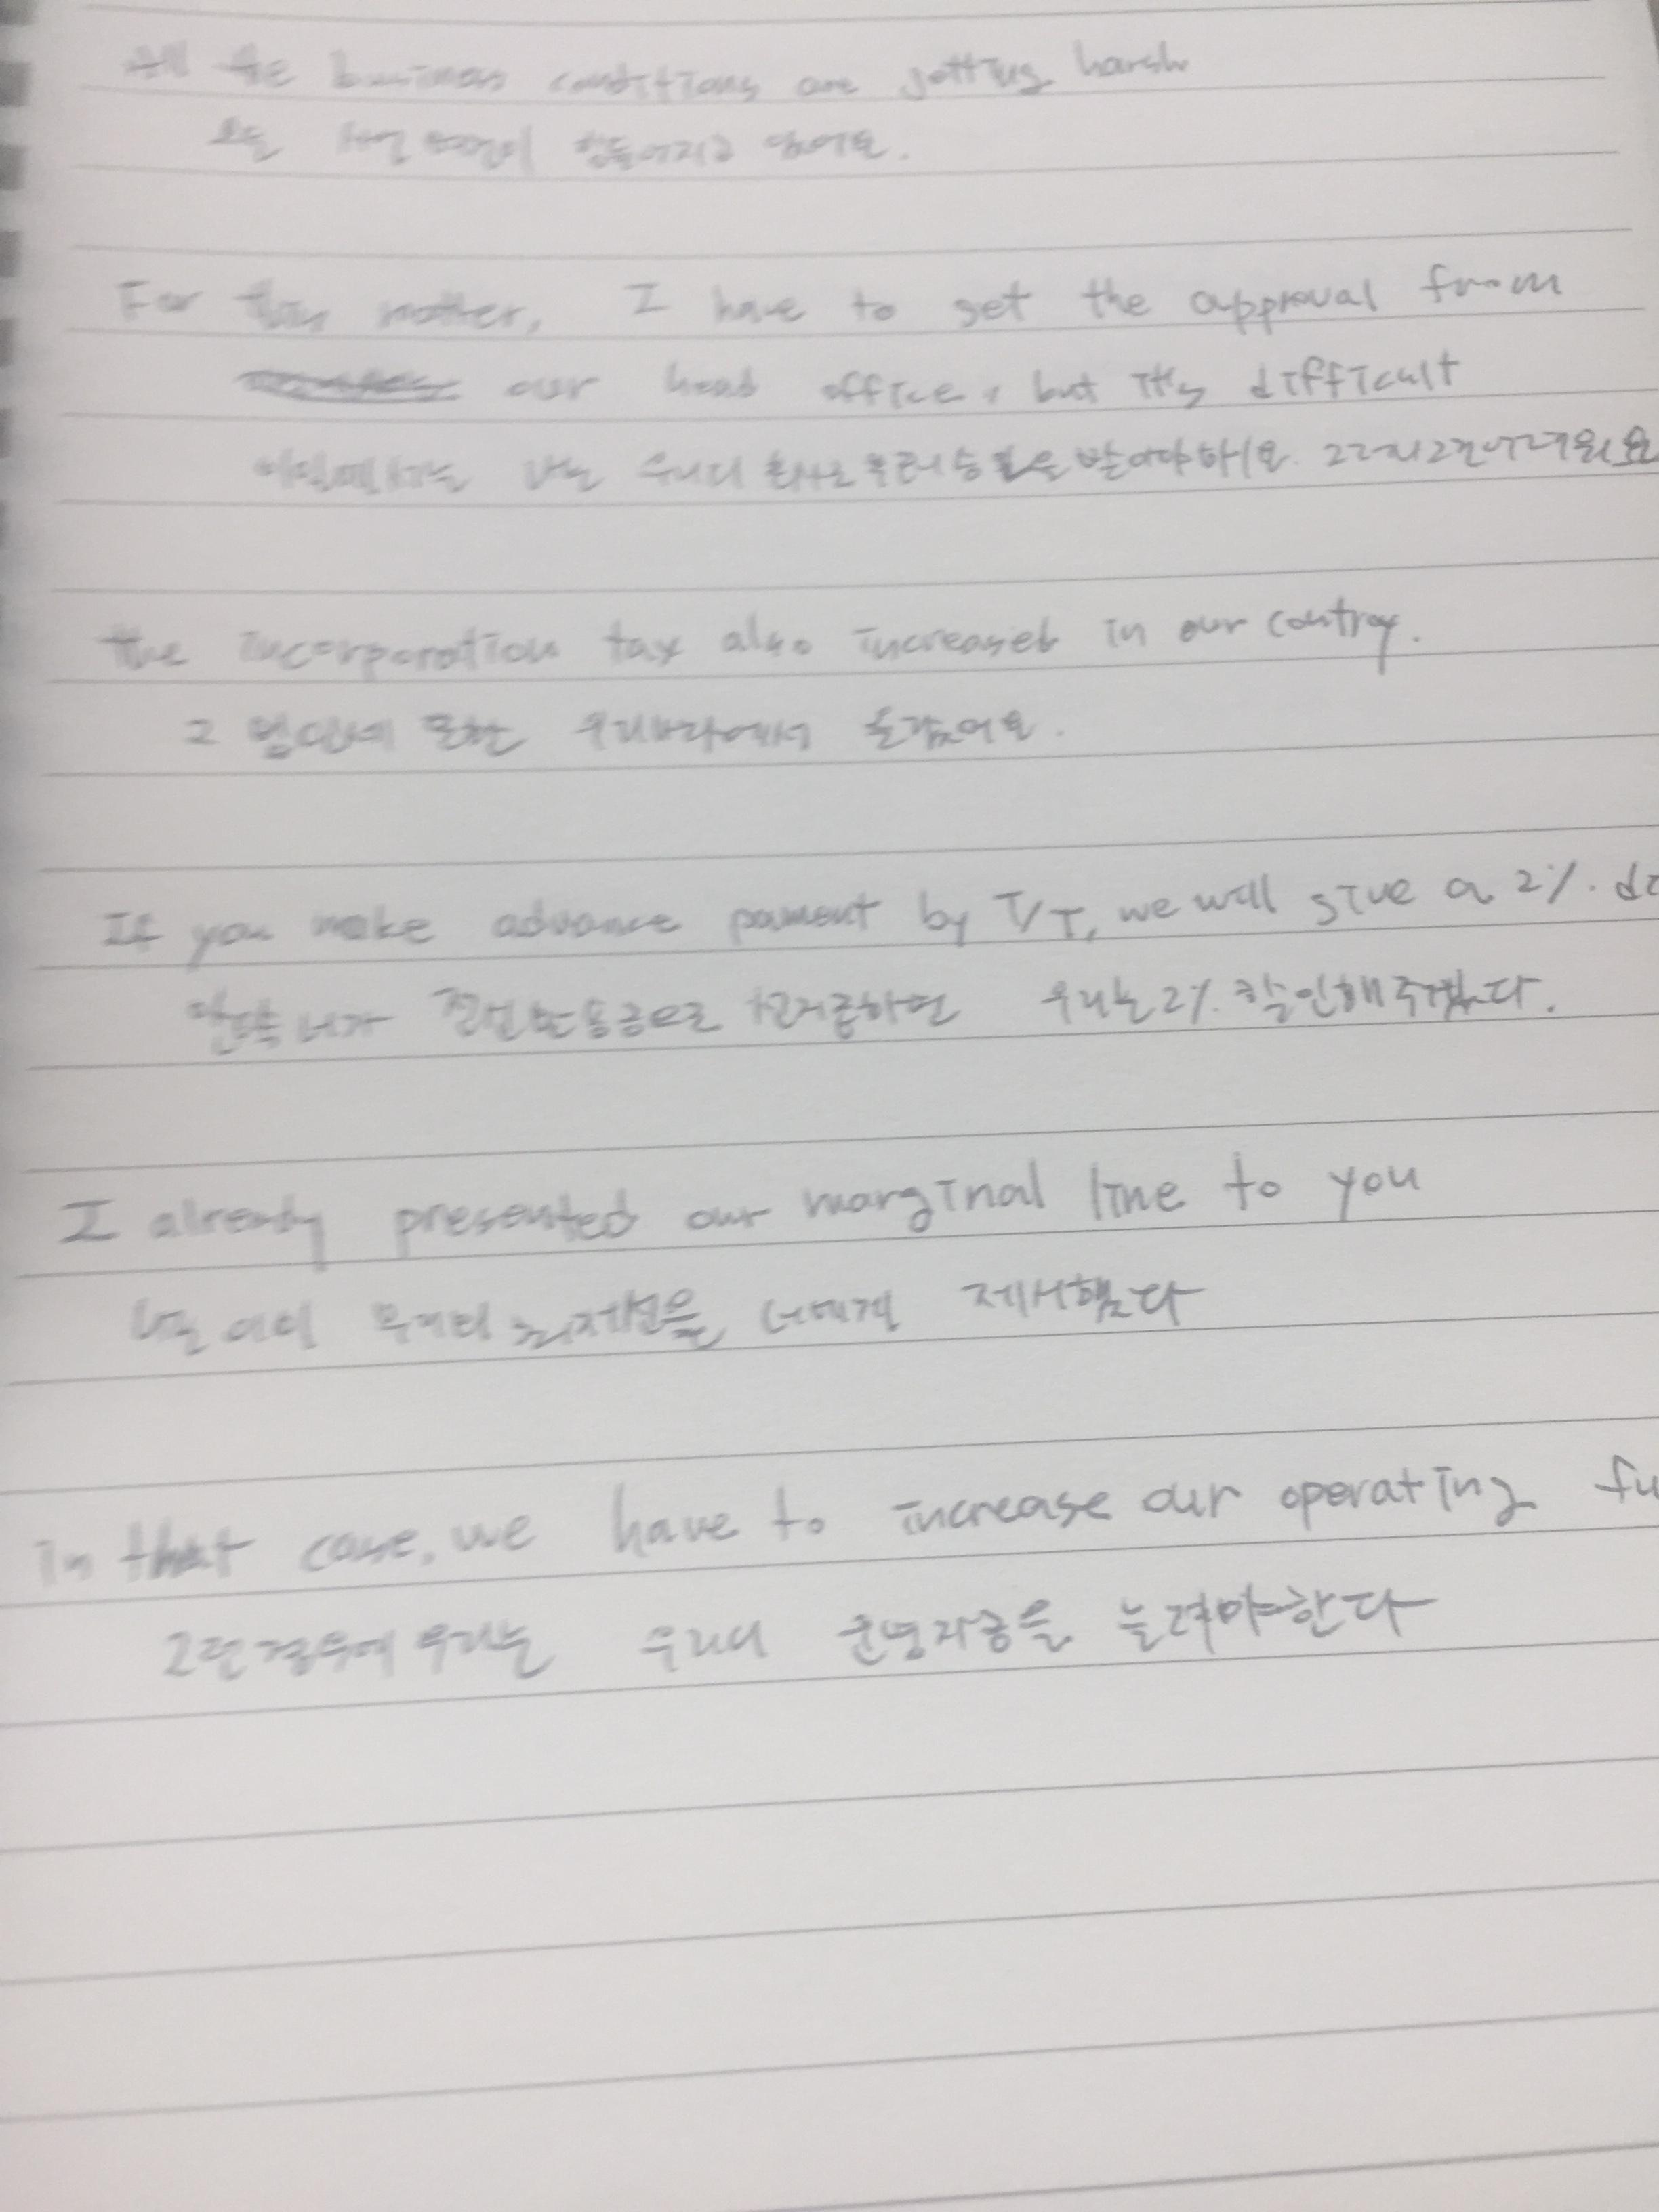 All the business conditions are getting harsh
모든 사업 조건이 힘들어지고 있어요.
For this matter, I have to get the approval from
our head office, but it's difficult
이일에서는 나는 우리의 회사로부터 승인을 받아야해요. 그러나 그건 어려워요
the incorporation tax also increased in our contray.
그 법인세 또한 우리나라에서 올랐어요.
If you make advance pament by T/T, we will give a 2%.
만약 너가 전신송금으로 선지급하면 우리는 2% 할인해주겠다.
I already presented our marginal line to you
나는 이미 우리의 최저선을 너에게 제시했다
in that case, we have to increase our operating
그런경우에 우리는 우리의 운영자금을 늘려야한다